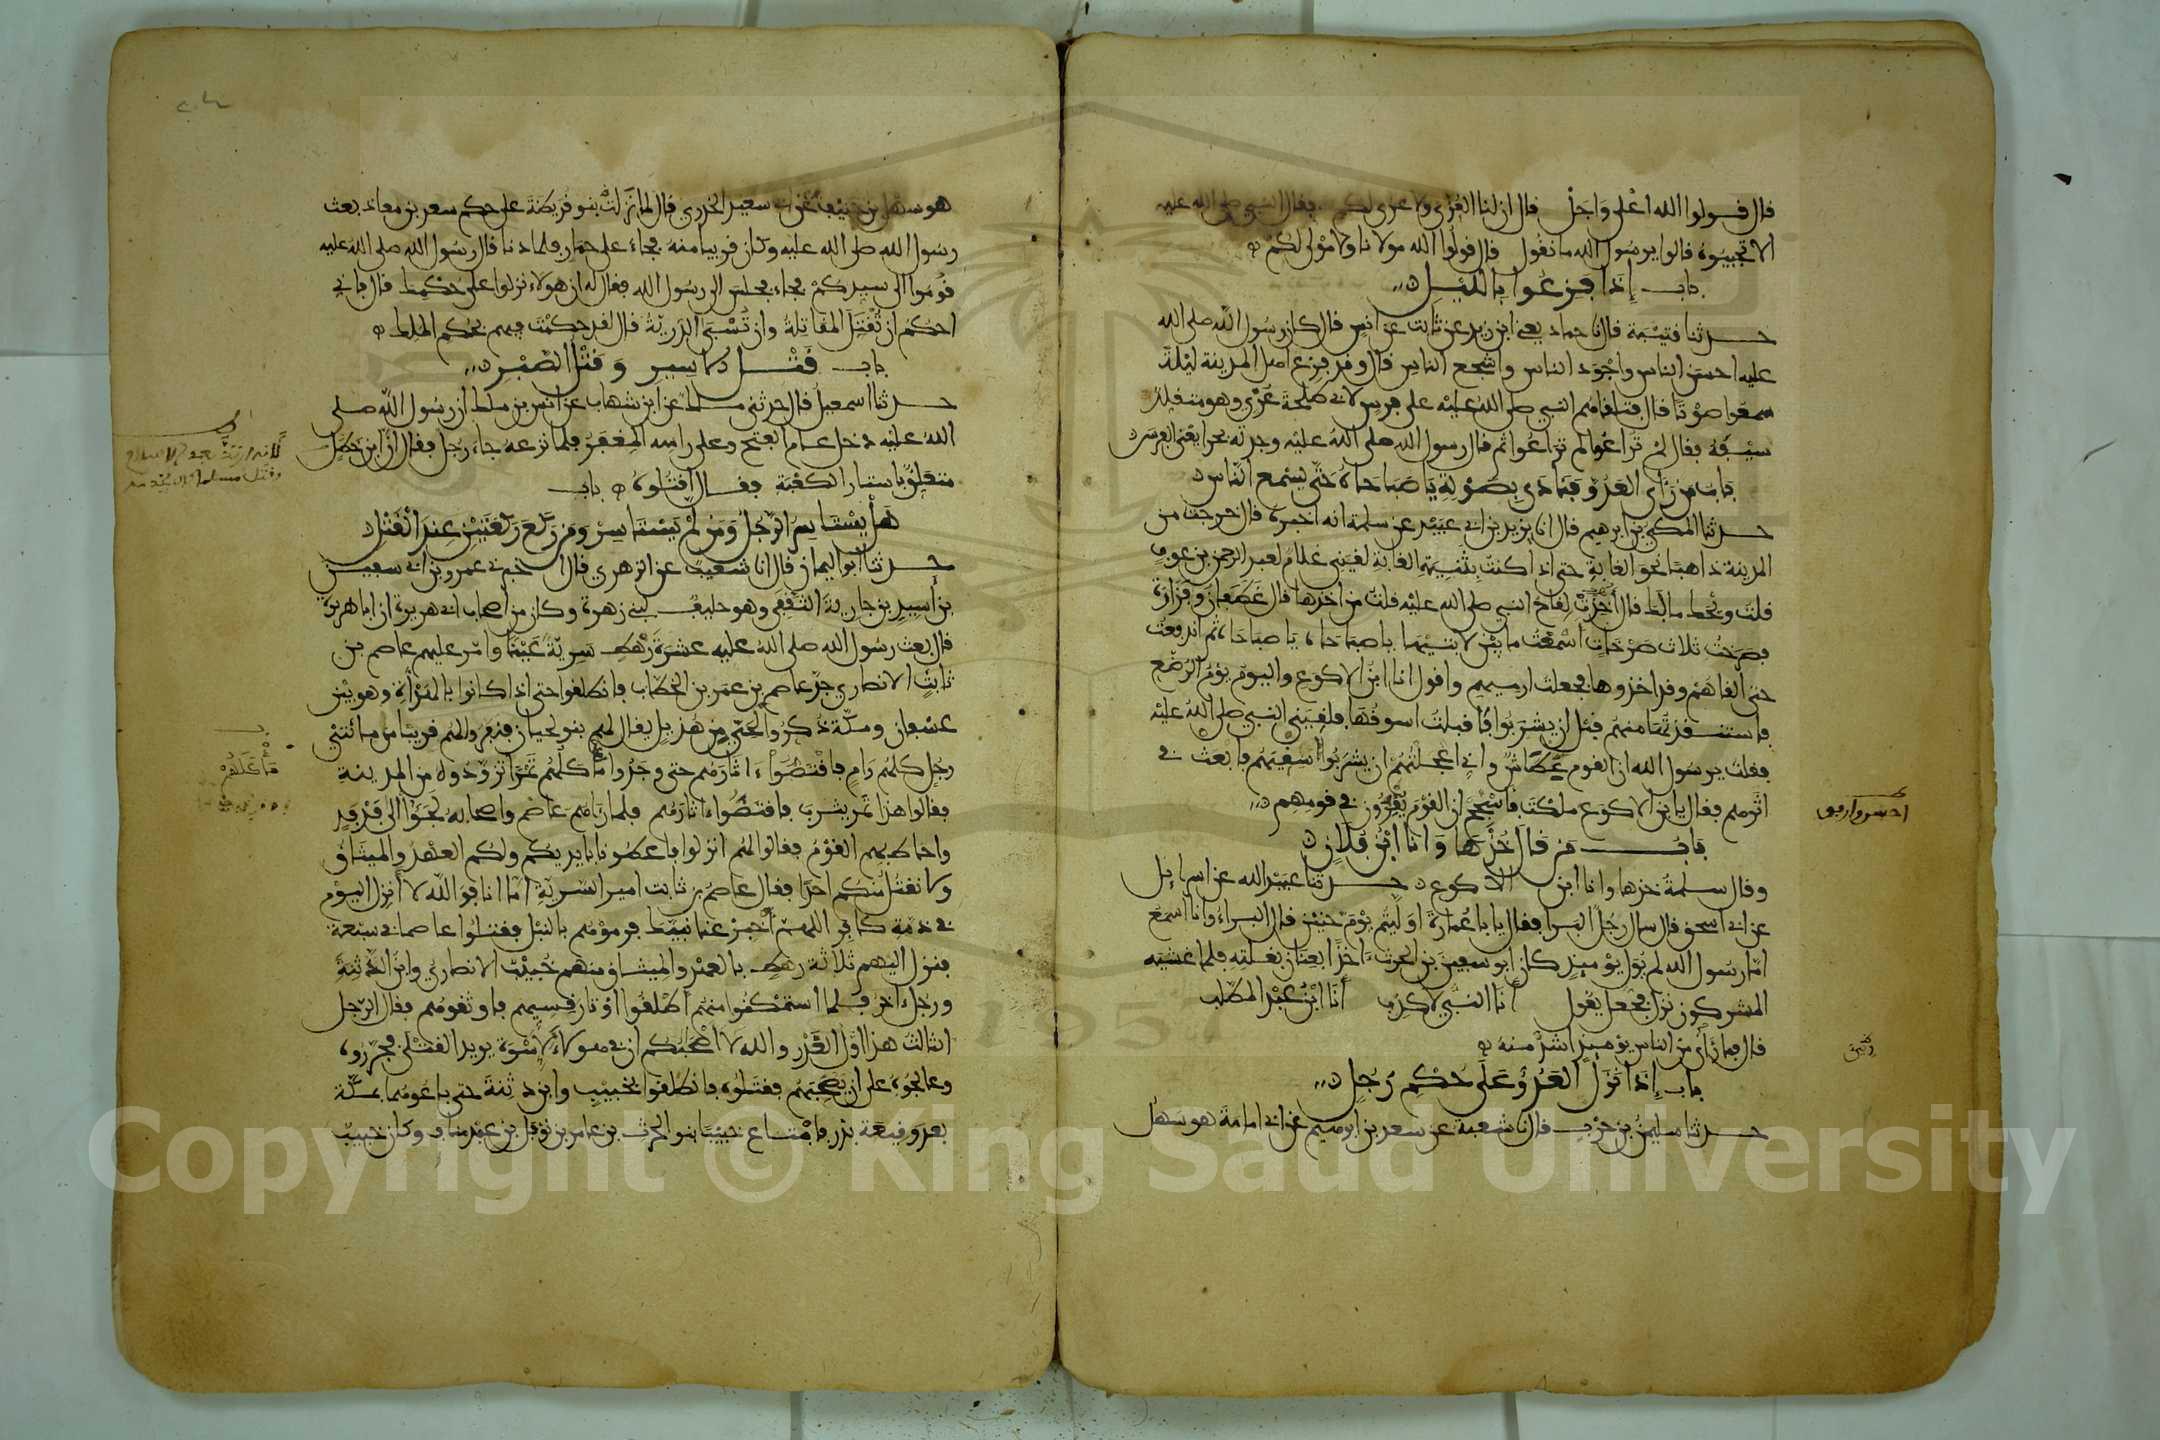 قال قولوا الله اعلى واجل قال ان لنا العزى ولا عزى لكم فقال النبي صلى الله عليه
الا تجيبوه قالوا يرسول الله ما نقول قال قولوا الله مولانا ولا مولى لكم
باب إذا فزعوا بالليل
حدثنا قتيبة قال نا حماد يعني ابن زيد عن ثابت عن انس قال كان رسول الله صلى الله
عليه احسن الناس واجود الناس واشجع الناس قال وقد فزع اهل المدينة ليلة
سمعوا صوتا قال فتلقاهم النبي صلى الله عليه على فرس لابي طلحة عري وهو متقلد
سيفه فقال لم تراعوا لم تراعوا ثم قال رسول الله صلى الله عليه وجدته بحرا يعني الفرس
باب من رأى العدو فنادى بصوته يا صباحاه حتى يسمع الناس
حدثنا المكي بن ابرهيم قال انا يزيد بن ابي عبيد عن سلمة انه اخبره قال خرجت من
المدينة ذاهبا نحو الغابة حتى اذا كنت بثنية الغابة لقيني غلام لعبد الرحمن بن عوف
قلت ويحك ما بك قال أخذت لقاح النبي صلى الله عليه قلت من اخذها قال غطفان وفزارة
فصرخت ثلاث صرخات اسمعت ما بين لابتيها يا صباحاه يا صباحاه ثم اندفعت
حتى ألقاهم وقد اخذوها فجعلت ارميهم واقول انا ابن الاكوع واليوم يوم الرضع
فاستنقذتها منهم قبل ان يشربوا فاقبلت اسوقها فلقيني النبي صلى الله عليه
فقلت يرسول الله ان القوم عطاش واني اعجلتهم ان يشربوا سقيهم فابعث في
اثرهم فقال يا بن الاكوع ملكت فاسجح ان القوم يقرون في قومهم
باب من قال خذها وانا ابن فلان
وقال سلمة خذها وانا ابن الاكوع حدثنا عبيد الله عن اسرايل
عن ابي اسحق قال سال رجل البرا فقال يا با عمارة اوليتم يوم حنين قال البراء وانا اسمع
اما رسول الله لم يول يوميذ كان ابو سفين بن الحرث ءاخذا بعنان بغلته فلما غشيه
المشركون نزل فجعل يقول أنا النبي لا كذب أنا ابن عبد المطلب
قال فما رأى من الناس يوميذ اشد منه
باب إذا نزل العدو على حكم رجل
حدثنا سليمن بن حرب قال نا شعبة عن سعد بن ابرهيم عن ابي امامة هو سهل
هو سهل بن حنيف عن ابي سعيد الخدري قال لما نزلت بنو قريظة على حكم سعد بن معاذ بعث
رسول الله صلى الله عليه وكان قريبا منه فجاء على حمار فلما دنا قال رسول الله صلى الله عليه
قوموا الى سيدكم فجاء فجلس الى رسول الله فقال له ان هولاء نزلوا على حكمك قال فاني
احكم ان تقتل المقاتلة وان تسبى الذرية قال لقد حكمت فيهم بحكم الملك
باب قتل الاسير وقتل الصبر
حدثنا اسمعيل قال حدثني ملك عن ابن شهاب عن انس بن ملك ان رسول الله صلى
الله عليه دخل عام الفتح وعلى راسه المغفر فلما نزعه جاء رجل فقال ان ابن خطل
متعلق باستار الكعبة فقال اقتلوه باب
هل يستاسر الرجل ومن لم يستاسر ومن ركع ركعتين عند القتل
حدثنا ابو اليمان قال انا شعيب عن الزهري قال اخبرني عمرو بن ابي سفين
بن أسيد بن جارية الثقفي وهو حليف لبني زهرة وكان من اصحاب ابي هريرة ان ابا هريرة
قال بعث رسول الله صلى الله عليه عشرة رهط سرية عينا وامر عليهم عاصم بن
ثابت الانصاري جد عاصم بن عمر بن الخطاب فانطلقوا حتى اذا كانوا بالهدأة وهو بين
عسفان ومكة ذكروا لحي من هذيل يقال لهم بنو لحيان فنفروا لهم قريبا من مائتي
رجل كلهم رام فاقتصوا ءاثارهم حتى وجدوا مأكلهم تمرا تزودوه من المدينة
فقالوا هذا تمر يثرب فاقتصوا ءاثارهم فلما رءاهم عاصم واصحابه لجؤا الى فدفد
واحاط بهم القوم فقالوا لهم انزلوا فاعطونا بايديكم ولكم العهد والميثاق
ولا نقتل منكم احدا فقال عاصم بن ثابت امير السرية اما انا فوالله لا أنزل اليوم
في ذمة كافر اللهم أخبر عنا نبيك فرموهم بالنبل فقتلوا عاصما في سبعة
فنزل اليهم ثلاثة رهط بالعهد والميثاق منهم خبيب الانصاري وابن الدثنة
ورجل ءاخر فلما استمكنوا منهم اطلقوا أوتار قسيهم فاوثقوهم فقال الرجل
الثالث هذا اول الغدر والله لا اصحبكم ان في هولاء لإسوة يريد القتلى فجرروه
وعالجوه على ان يصحبهم فقتلوه فانطلقوا بخبيب وابن دثنة حتى باعوهما بمكة
بعد وقيعة بدر فابتاع خبيبا بنو الحرث بن عامر بن نوفل بن عبد مناف وكان خبيب
Copyright © King Saud University
1957